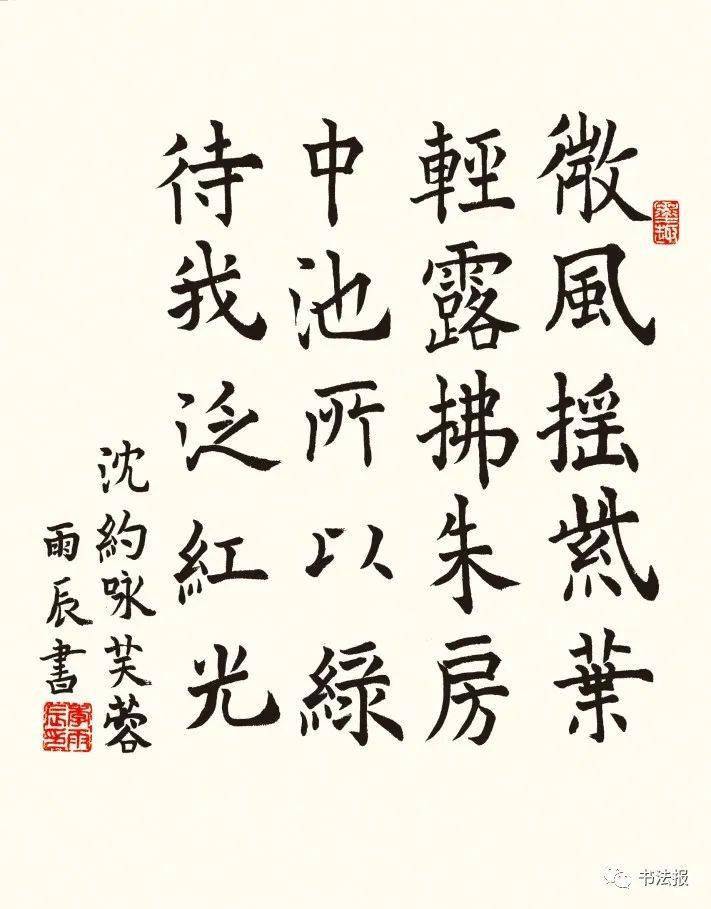 墨趣
微風摇紫葉
輕露拂朱房
中池所以綠
待我泛紅光
沈約咏芙蓉
雨辰書
书法报